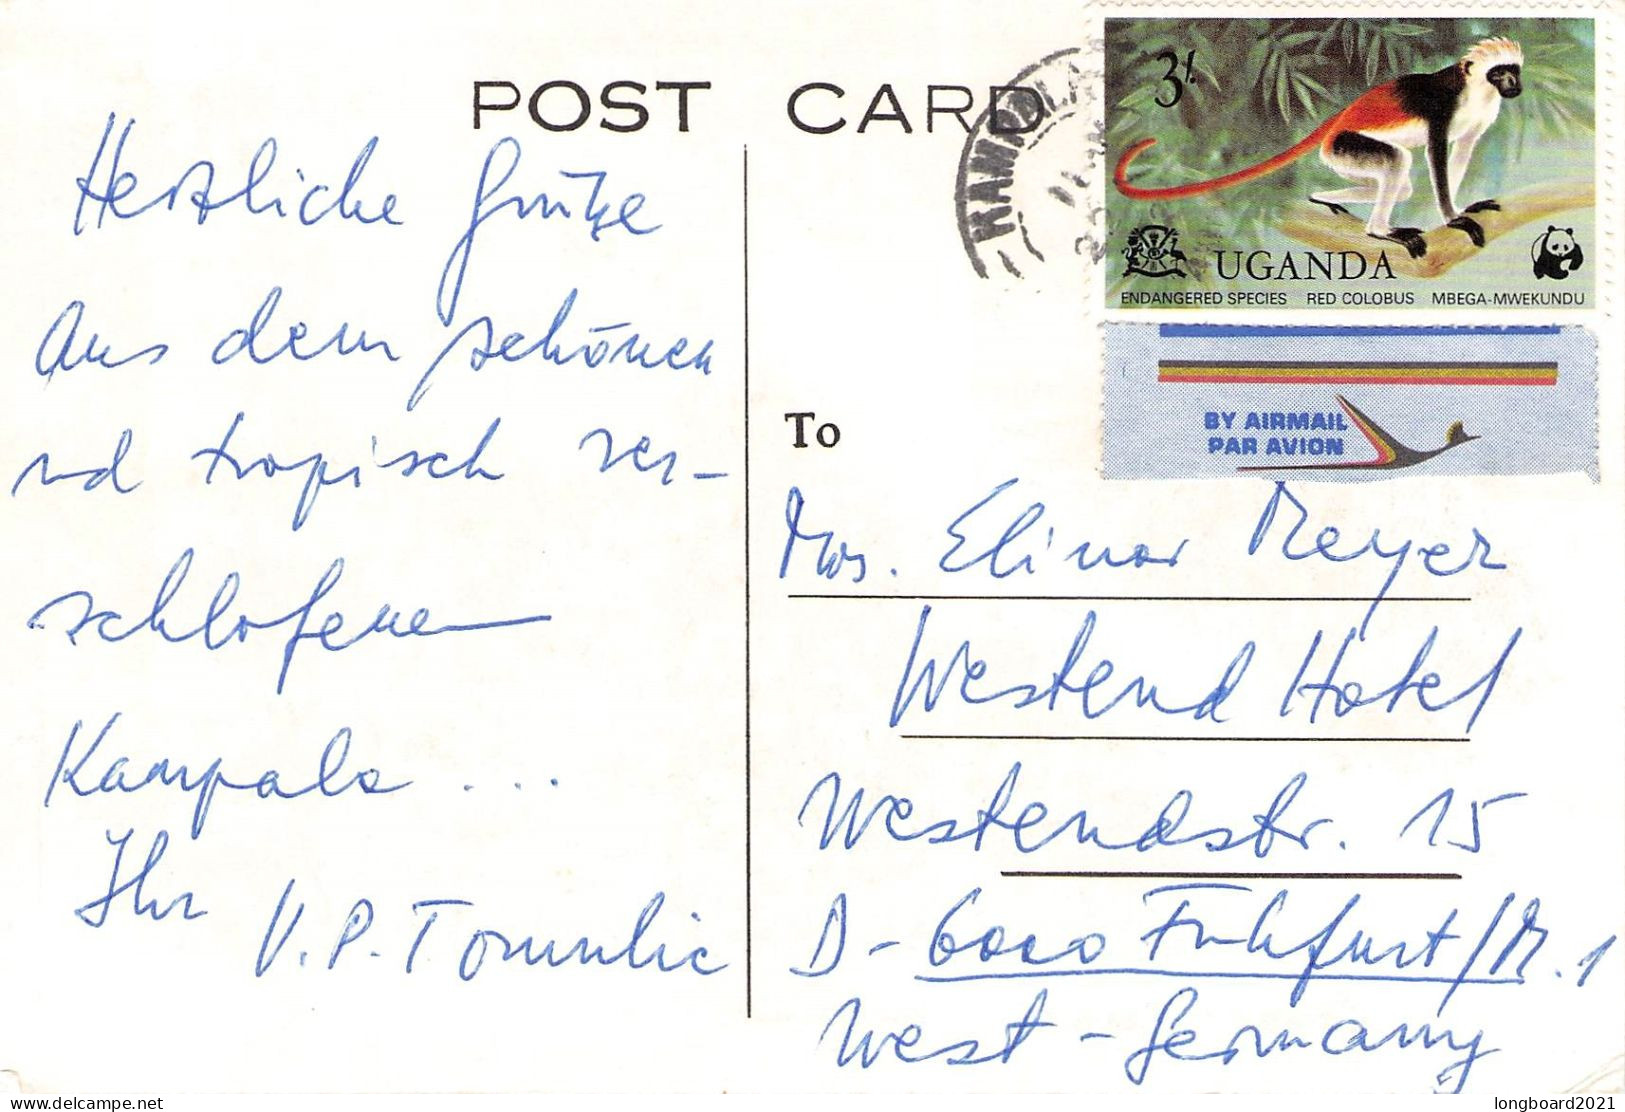 POST CARD
Herzliche Grüße
aus dem schönen
und tropisch ver-
schlafenen
Kampala ...
Ihr
V. P. Tomulic
KAMPALA
3/-
UGANDA
ENDANGERED SPECIES RED COLOBUS MBEGA-MWEKUNDU
BY AIRMAIL
PAR AVION
To
Mrs. Elinor Meyer
Westend Hotel
Westendstr. 15
D-6000 Frankfurt/M. 1
West-Germany
delcampe.net
longboard2021